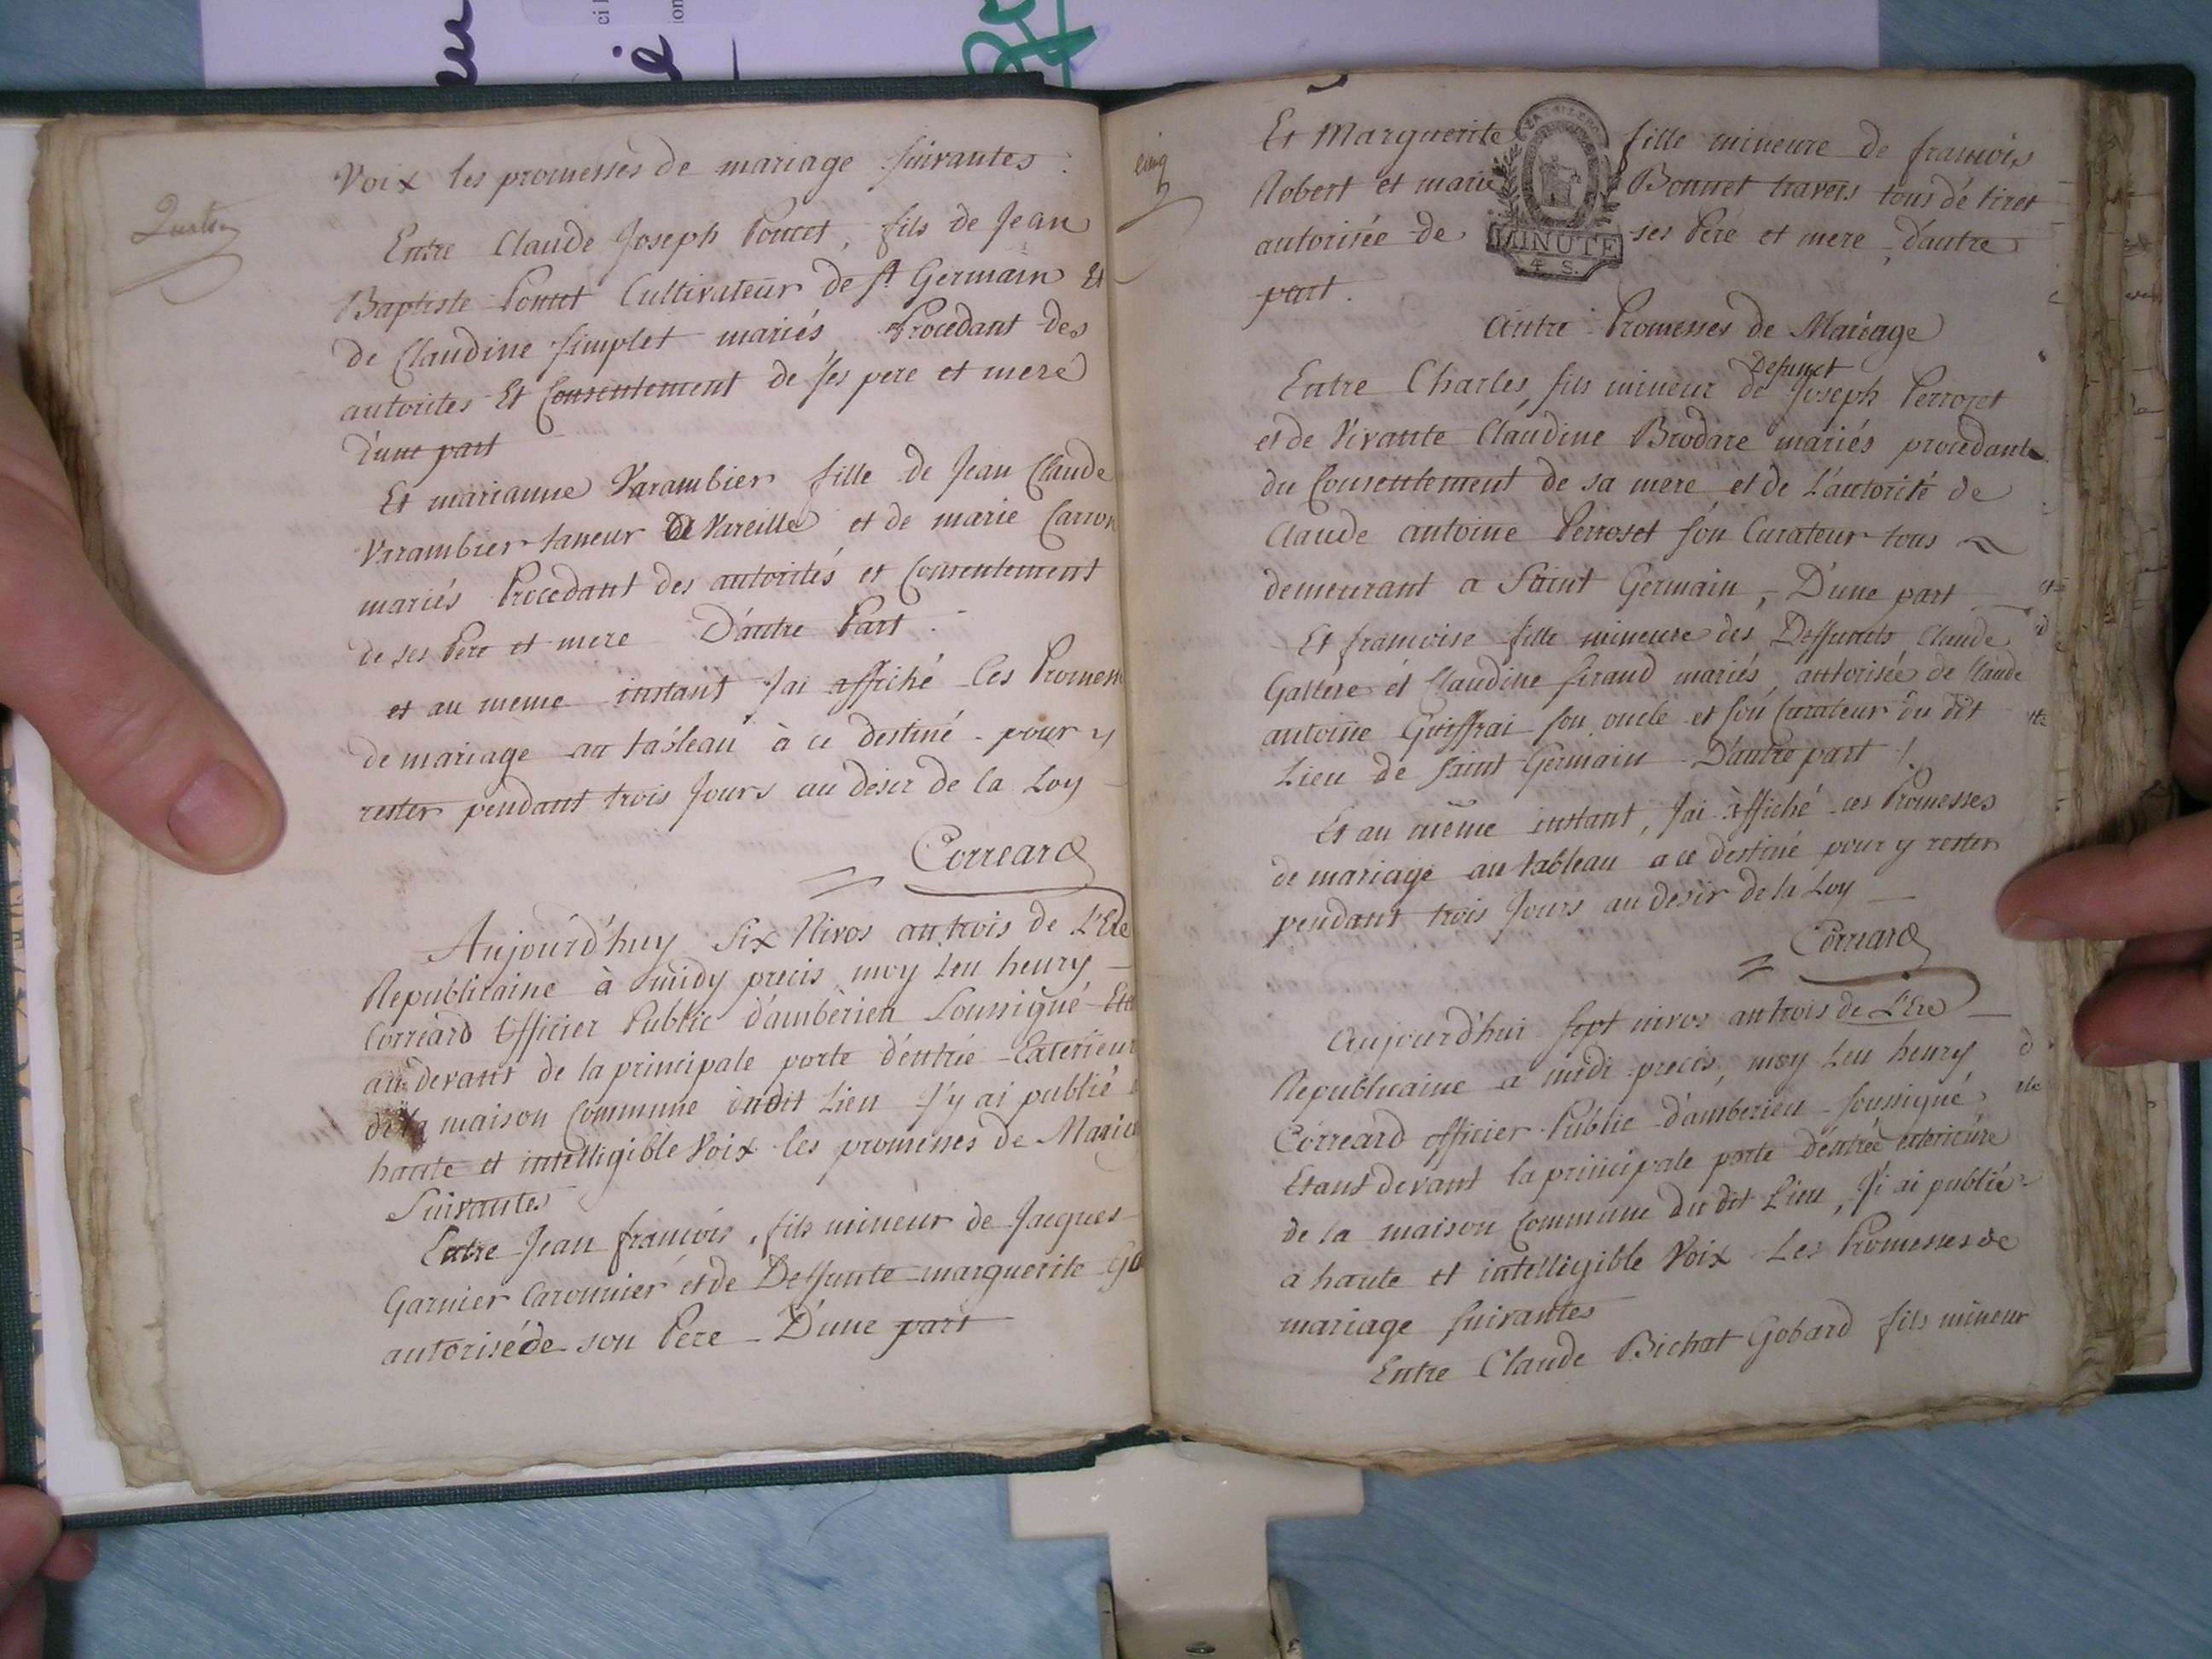 Voix les promesses de mariage suivantes :
Entre Claude Joseph Poncet, fils de Jean
Baptiste Poncet Cultivateur de St Germain Et
de Claudine Simplet mariés Procedant des
autorites Et Consentement de ses pere et mere
d'une part
Et marianne Varambier fille de Jean Claude
Varambier taneur de Vareille et de marie Carron
mariés Procedant des autorités et Consentement
de ses Pere et mere D'autre Part .
et au meme instant J'ai affiché Ces Promess
de mariage au tableau à ce destiné pour y
rester pendant trois Jours au desir de la Loy
Correard
Aujourd'huy Six Nivos an trois de L'Ere
Republicaine à midy precis moy Leu henry
Correard Officier Public d'ambèrieu Soussigné
au devant de la principale porte d'entrée Exterieur
de la maison Commune dudit Lieu J'y ai publié
haute et intelligible Voix les promesses de Maria
Suivantes
Entre Jean francois, fils mineur de Jacques
Garnier et de Deffunte marguerite
autorisé de son Pere D'une part
cinq
Et Marguerite fille mineure de francois
Robert et marie Bonnet travers tous de tiret
autorisée de ses Pere et mere, d'autre
part.
MINUTE
4 S.
Autre Promesses de Mariage
Defunct
Entre Charles, fils mineur de Joseph Perroset
et de Vivante Claudine Brodare mariés procedant
du Consentement de sa mere et de L'autorité de
Claude antoine Perroset son Curateur tous
demeurant a Saint Germain, D'une part
Et francoise fille mineure des Deffunts Claude
et Claudine Siraud mariés, autorisée de Claude
antoine Guiffrai son oncle et son Curateur du dit
Lieu de Saint Germain D'autre part .
Et au même instant, J'ai affiché ces Promesses
de mariage au tableau a ce destiné pour y rester
pendant trois Jours au desir de la Loy
Correard
Aujourd'hui sept nivos an trois de L'Ere
Republicaine a midi precis, moy Leu henry
Correard officier Public d'amberieu soussigné,
Etant devant la principale porte d'entrée exterieure
de la maison Commune du dit Lieu, J'i ai publié
a haute et intelligible Voix Les Promesses de
mariage suivantes
Entre Claude Bichat Gobard fils mineur